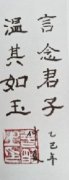 言念君子
溫其如玉
乙巳年